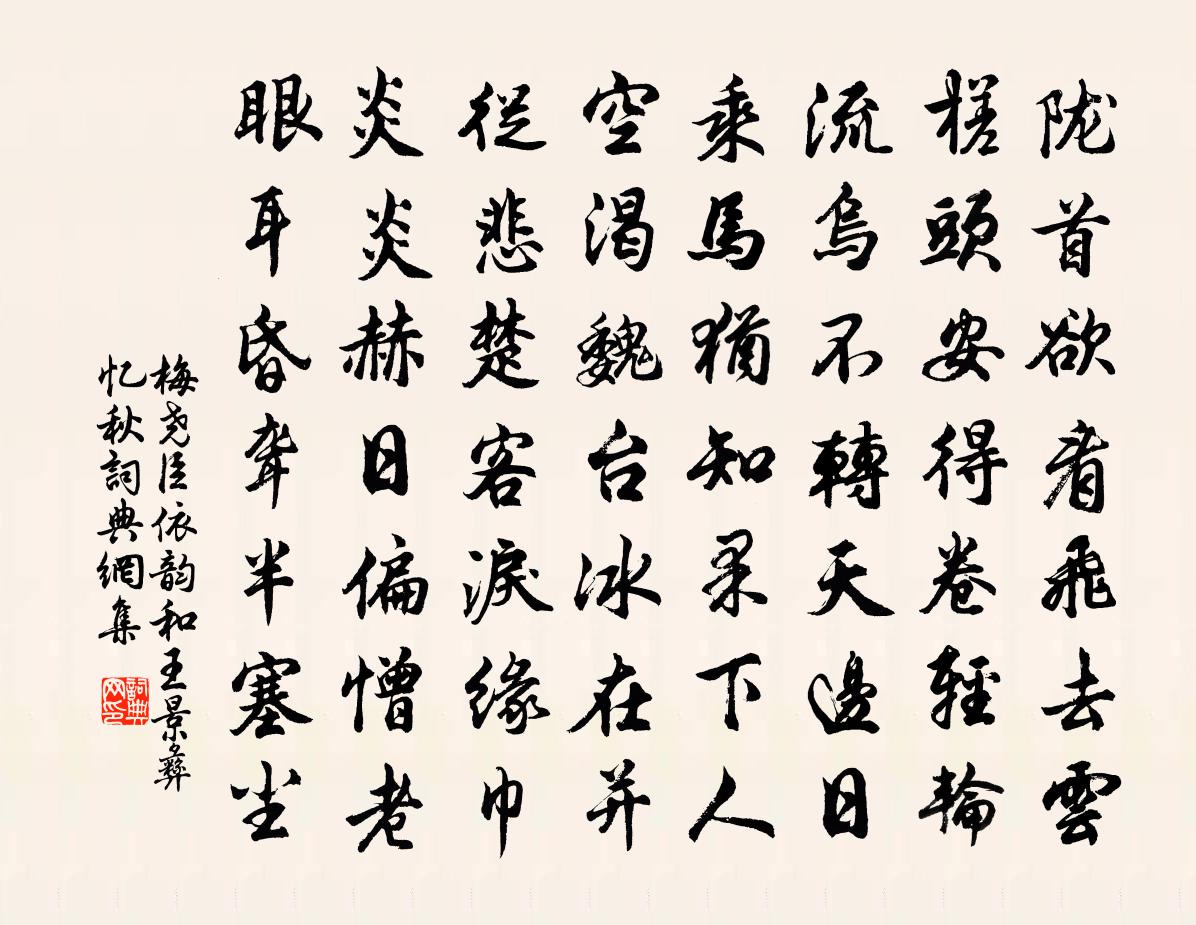 陇首欲看飛去雲
槎頭安得卷輕輪
流烏不轉天邊日
乘馬猶知果下人
空渴魏台冰在并
從悲楚客淚緣巾
炎炎赫日偏憎老
眼耳昏聾半塞尘
梅尧臣依韵和王景彝
忆秋詞典網集
詞典网印